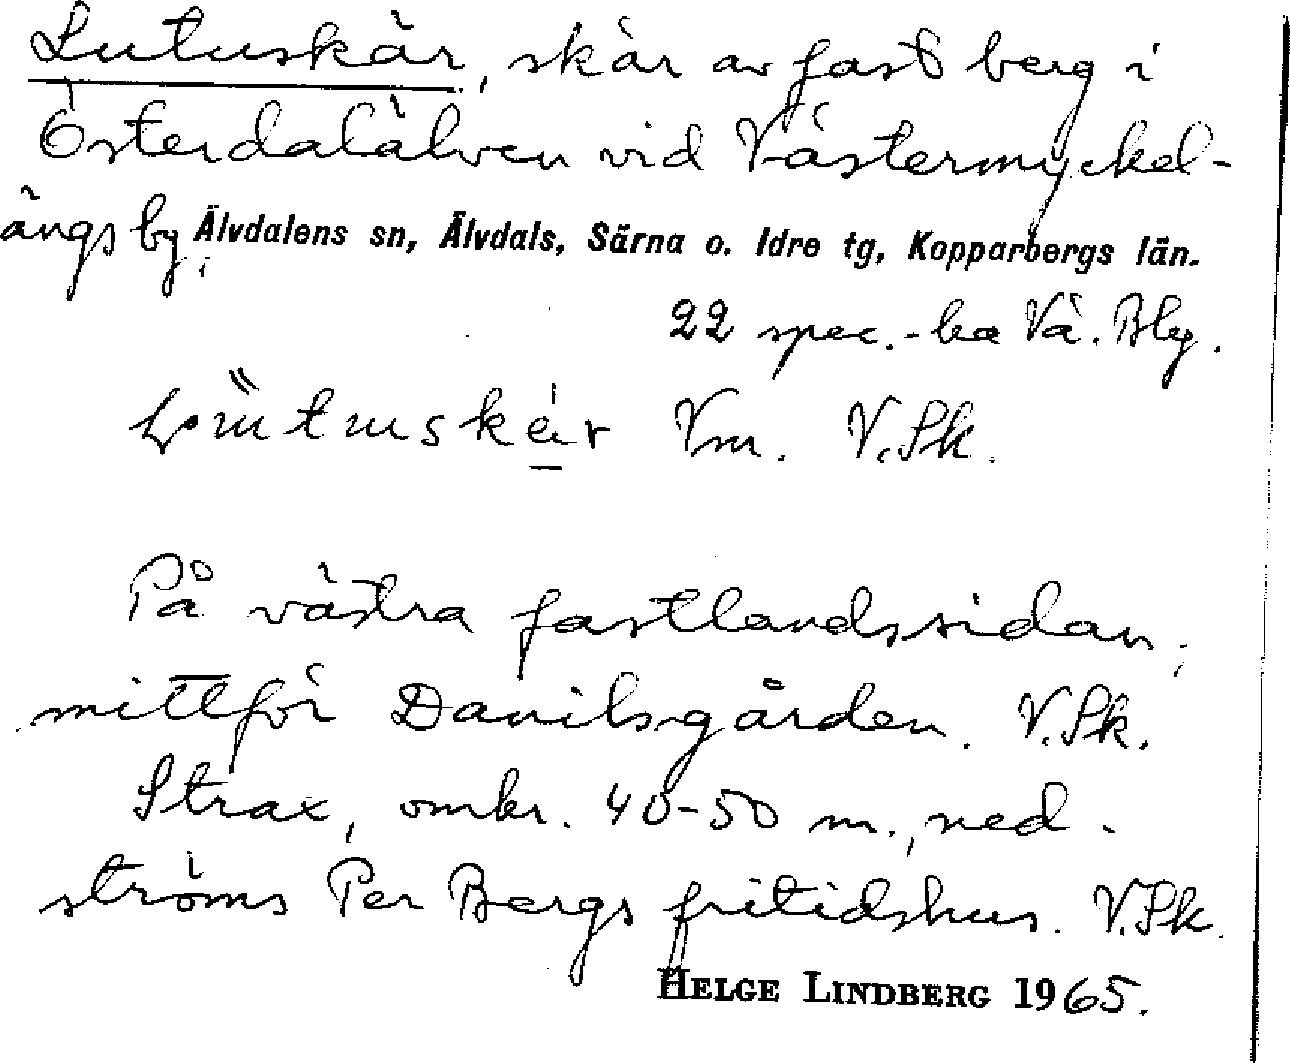 Lutuskär, skär av fast berg i
Österdalälven vid Västermyckel-
ängs by,
Älvdalens sn, Älvdals, Särna o. Idre tg, Kopparbergs län.
22 spec.-ka Vä. Bly.
Vm. V.Sk.
På västra fastlandssidan,
mittför Danilsgården. V.Sk.
Strax, omkr. 40-50 m., ned-
ströms Per Bergs fritidshus. V.Sk.
HELGE LINDBERG 1965.